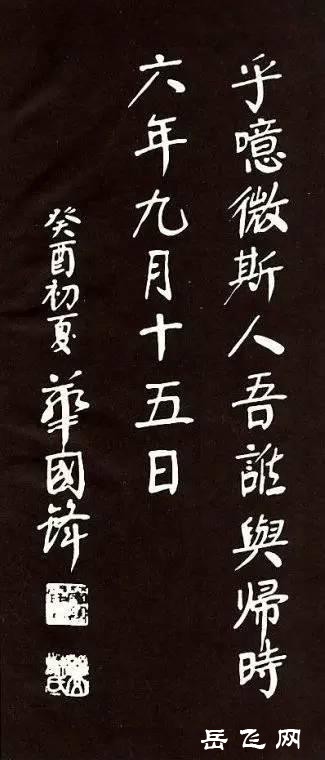 乎噫微斯人吾誰與歸時
六年九月十五日
癸酉初夏 華國鋒
岳飞网